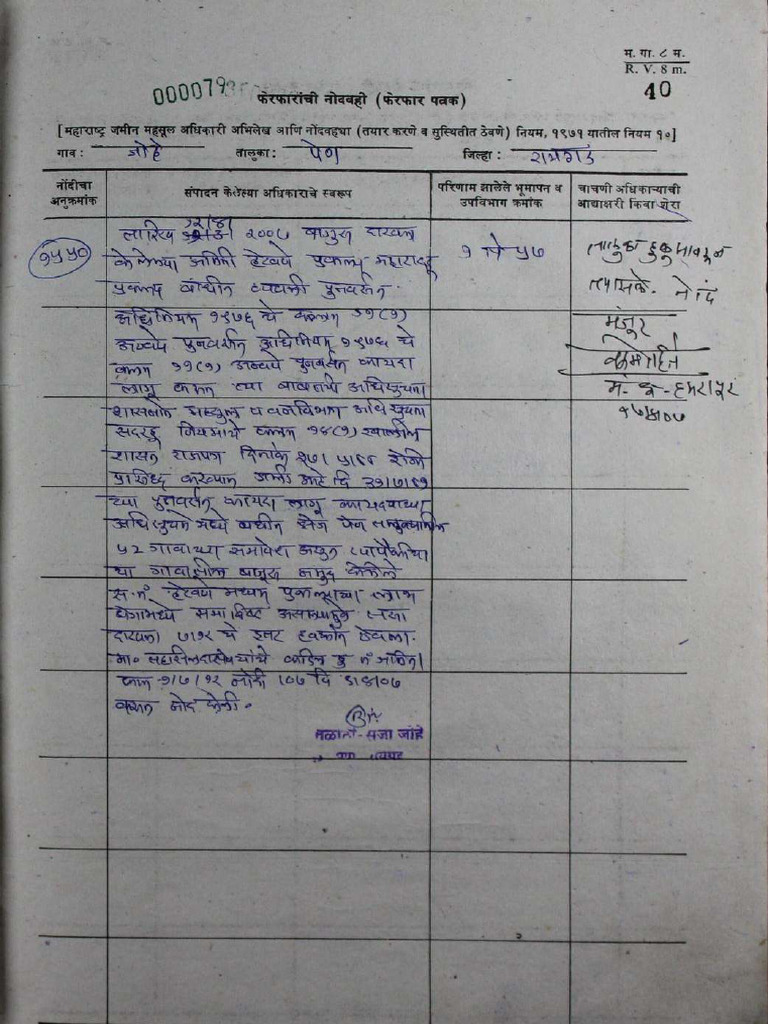 म. गा. ८ म.
R. V. 8 m.
40
0000793
फेरफारांची नोंदवही (फेरफार पत्रक)
[महाराष्ट्र जमीन महसूल अधिकारी अभिलेख आणि नोंदवह्या (तयार करणे व सुस्थितीत ठेवणे) नियम, १९७१ यातील नियम १०]
गाव : जोहे तालुका : पेण जिल्हा : रायगड
नोंदीचा अनुक्रमांक
संपादन केलेल्या अधिकाराचे स्वरूप
परिणाम झालेले भूमापन व उपविभाग क्रमांक
चाचणी अधिकाऱ्याची आद्याक्षरी किंवा शेरा
१५५०
तारिख २००७ बाजुस दाखल
केलेल्या जमिनी हेटवणे प्रकल्प महाराष्ट्र
प्रकल्प बाधीत व्यक्ती पुनर्वसन
अधिनियम १९७६ चे कलम ११(१)
अन्वये पुनर्वसन अधिनियम १९७६ चे
कलम ११(१) अन्वये पुनर्वसन कायदा
लागू करून त्या बाबतची अधिसुचना
शासनाने महसुल व वनविभाग अधिसुचना
सदरहु नियमाचे कलम १४(१) खालील
शासन राजपत्र दिनांक रोजी
प्रसिध्द करण्यात आली आहे दि
च्या पुनर्वसन कायदा लागू कायद्याच्या
अधिसुचने मध्ये बाधीत क्षेत्र पेण तालुक्यातील
५२ गावाच्या समावेश असुन त्यापैकी
या गावातील बाजुस नमुद केलेले
स.नं. हेटवणे मध्यम प्रकल्पाच्या लाभ
क्षेत्रामध्ये समाविष्ट असल्यामुळे
दाखल ७/१२ चे इतर हक्कात ठेवला.
मा. तहसिलदार यांचे कडिल हु नं
वरून नोंद केली.
तलाठी - सजा जोहे
१ ते ५७
तालुका हुकुमावरून
तपासले. नोंद
मंजूर
मं. अ. हमरापूर